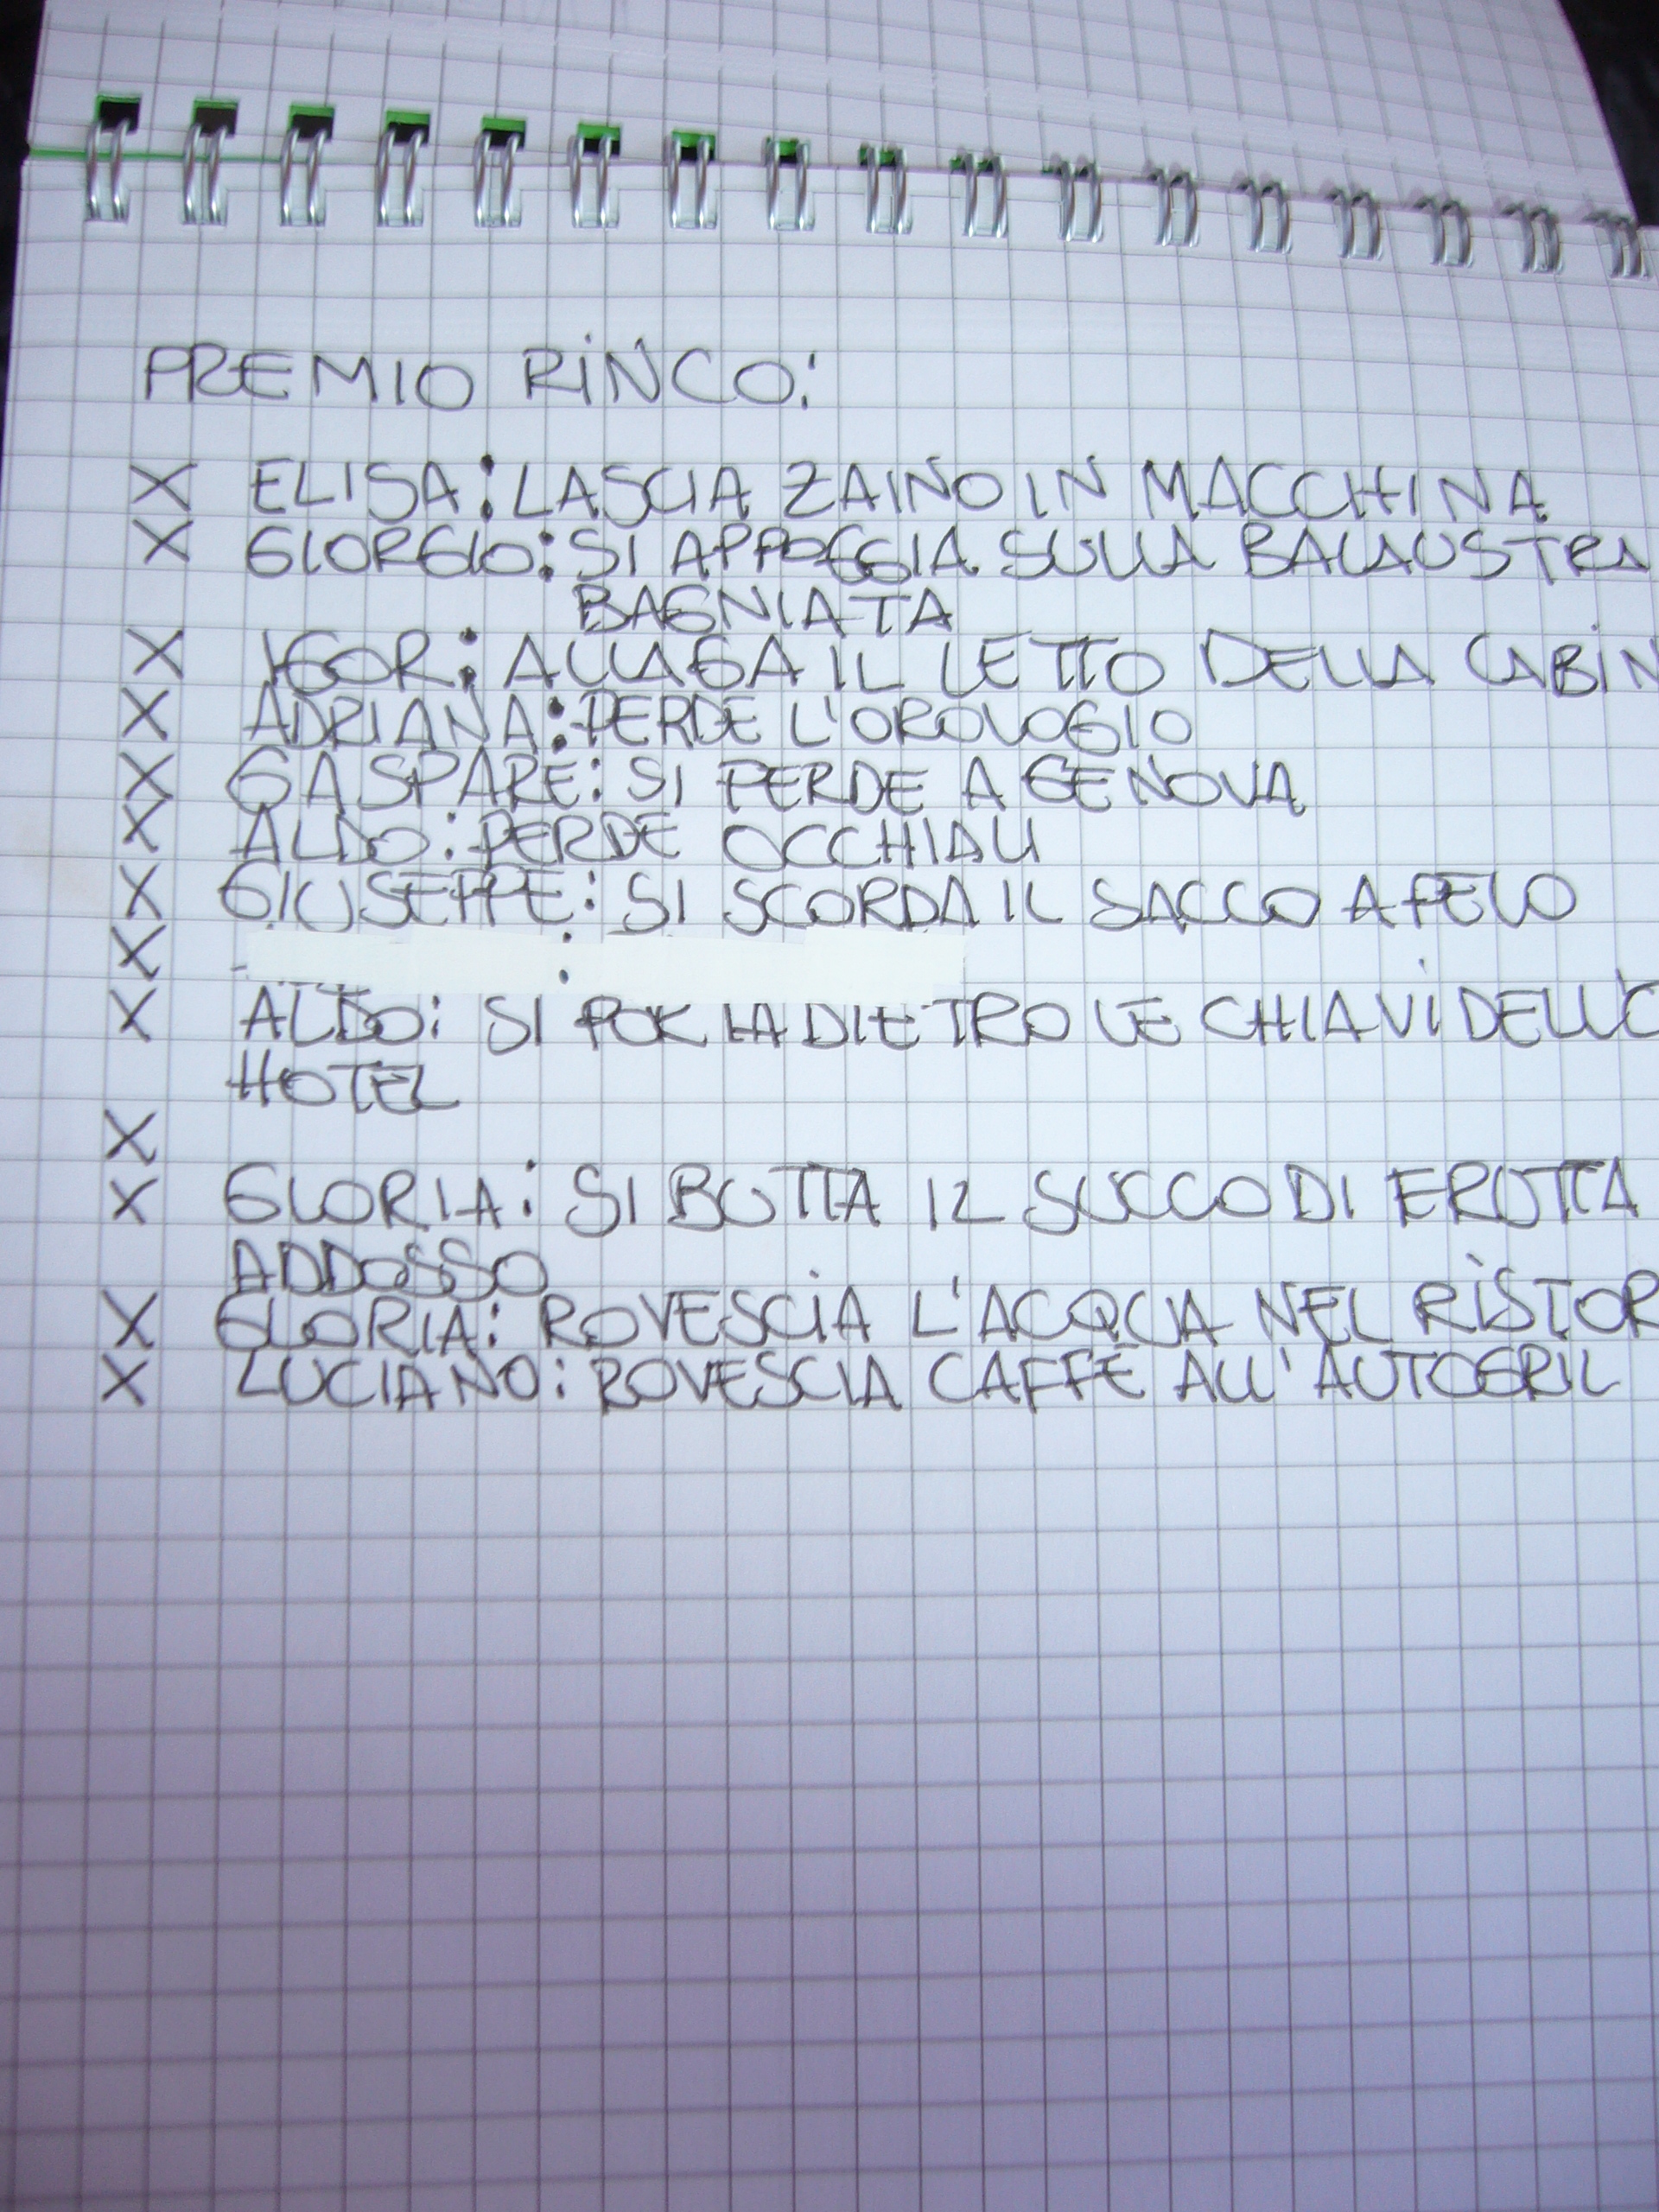 PREMIO RINCO:
X ELISA: LASCIA ZAINO IN MACCHINA
X GIORGIO: SI APPOGGIA SULLA BALAUSTRA
BAGNIATA
X IGOR: ALLAGA IL LETTO DELLA CABIN
X ADRIANA: PERDE L'OROLOGIO
X GASPARE: SI PERDE A GENOVA
X ALDO: PERDE OCCHIALI
X GIUSEPPE: SI SCORDA IL SACCO A PELO
X :
X ALDO: SI PORTA DIETRO LE CHIAVI DELL'O
HOTEL
X
X GLORIA: SI BUTTA IL SUCCO DI FRUTTA
ADDOSSO
X GLORIA: ROVESCIA L'ACQUA NEL RISTOR
X LUCIANO: ROVESCIA CAFFÈ ALL'AUTOGRIL